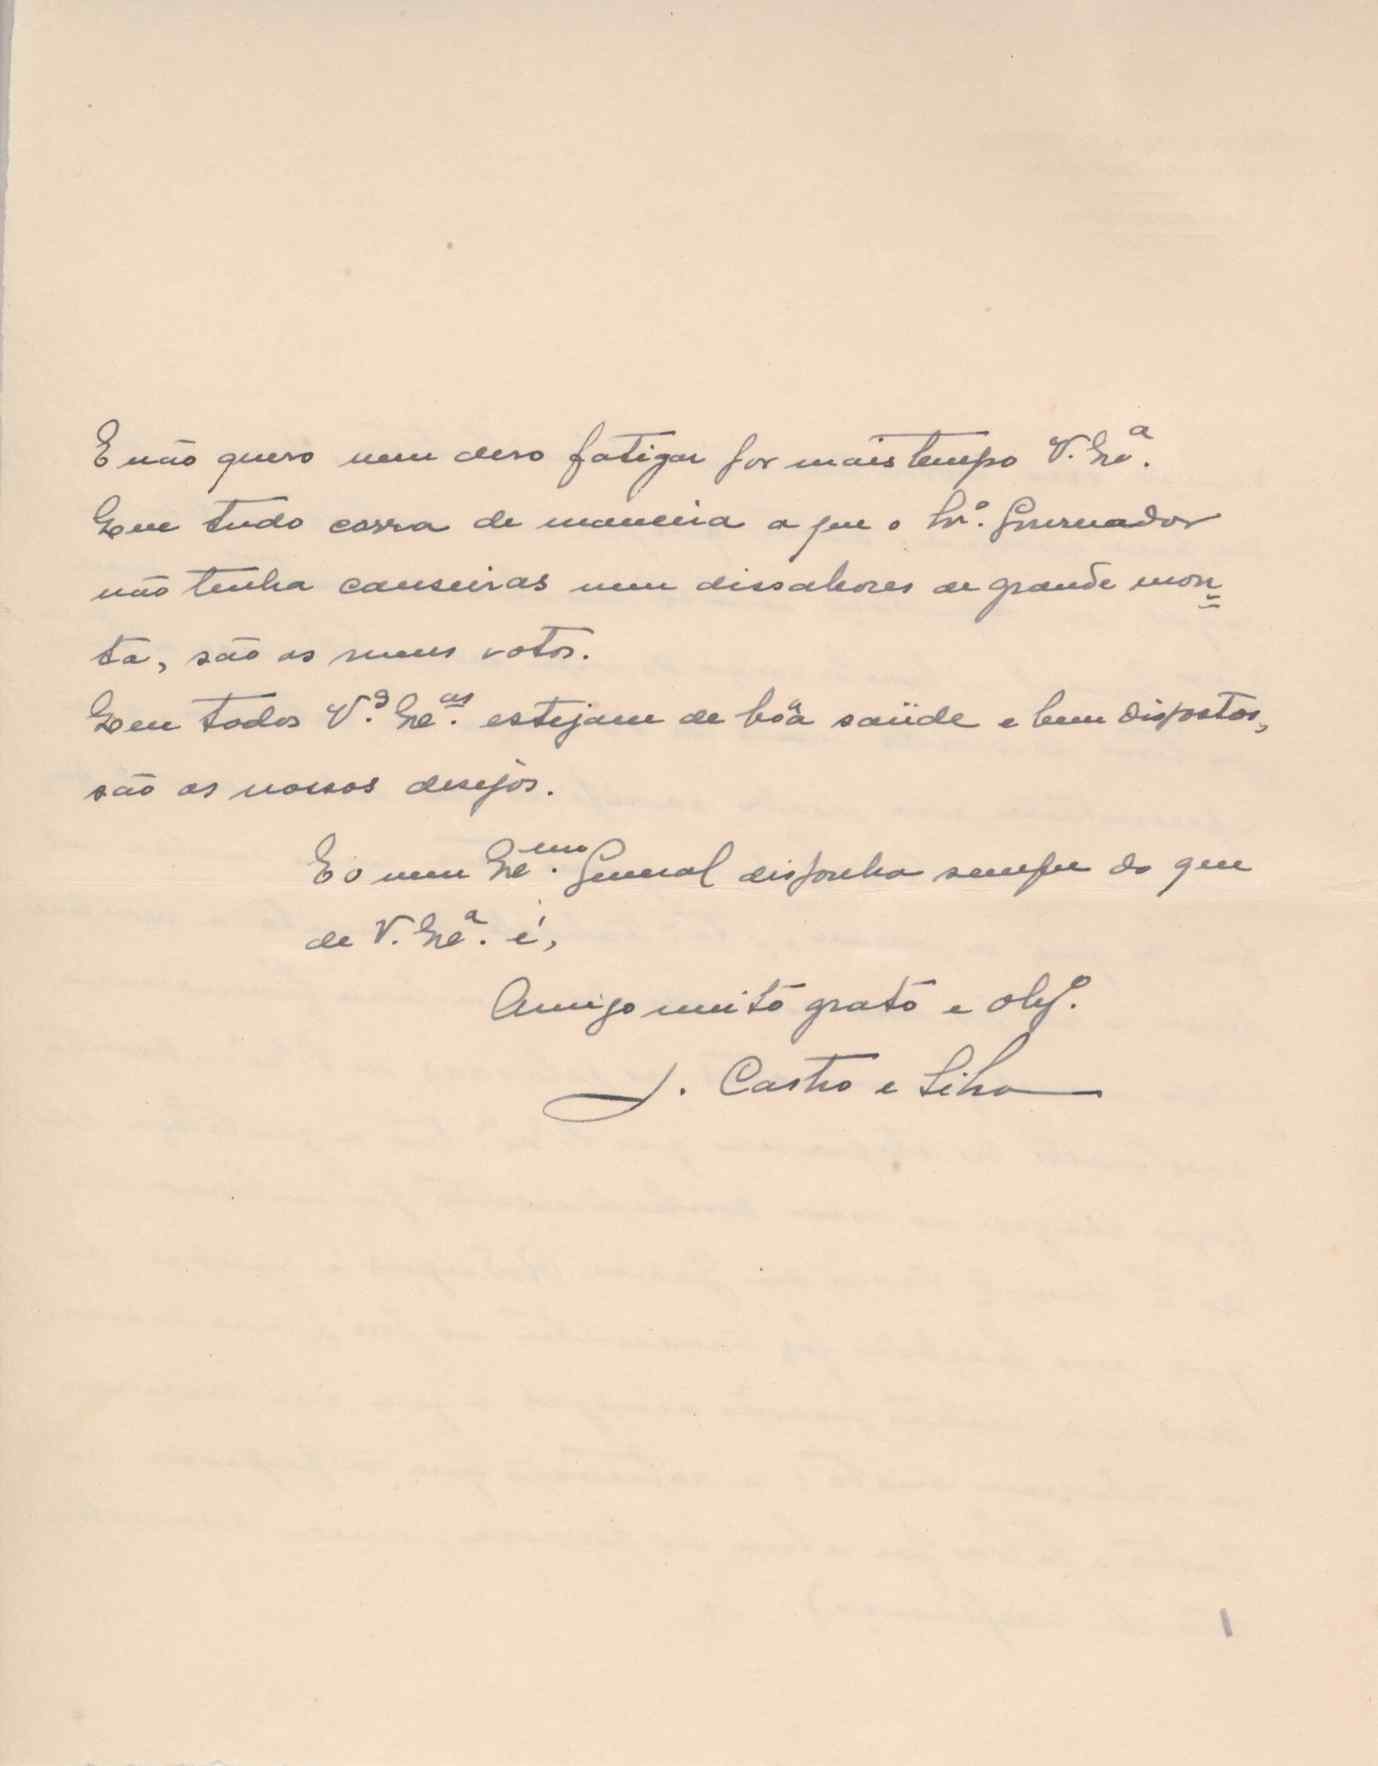 E não quero nem devo fatigar por mais tempo V. Exª.
Que tudo corra de maneira a que o Snr. Governador
não tenha canseiras nem dissabores de grande mon=
ta, são os meus votos.
Que todos V.ªs Exªs. estejam de bôa saüde e bem dispostos,
são os nossos desejos.
E o meu Exmo. General disponha sempre do que
de V. Exª. é,
Amigo muito grato e obgº.
J. Castro e Silva